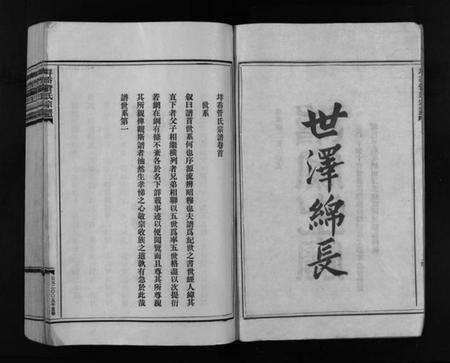 世澤綿長
管氏宗譜卷首
世系
叙曰譜首世系何也序源流辨昭穆也夫譜爲紀世之書世經人緯其
直下者父子相繼橫列者兄弟相聯以五世爲率五世格盡以次提衍
若網在綱有條不紊各於名下詳載事迹以便閱覽而且尊其所尊親
其所親俾觀斯譜者油然生孝悌之心敬宗收族之道孰有急於此哉
譜世系第一